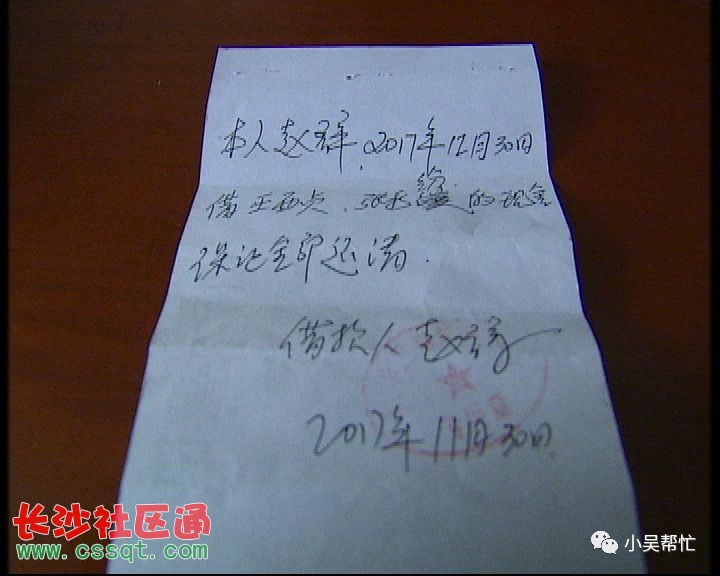 本人赵群,2017年12月30日
借王西点、张玉的现金
保证全部还清.
借款人赵群
2017年11月30日.
长沙社区通
www.cssqt.com
小吴帮忙